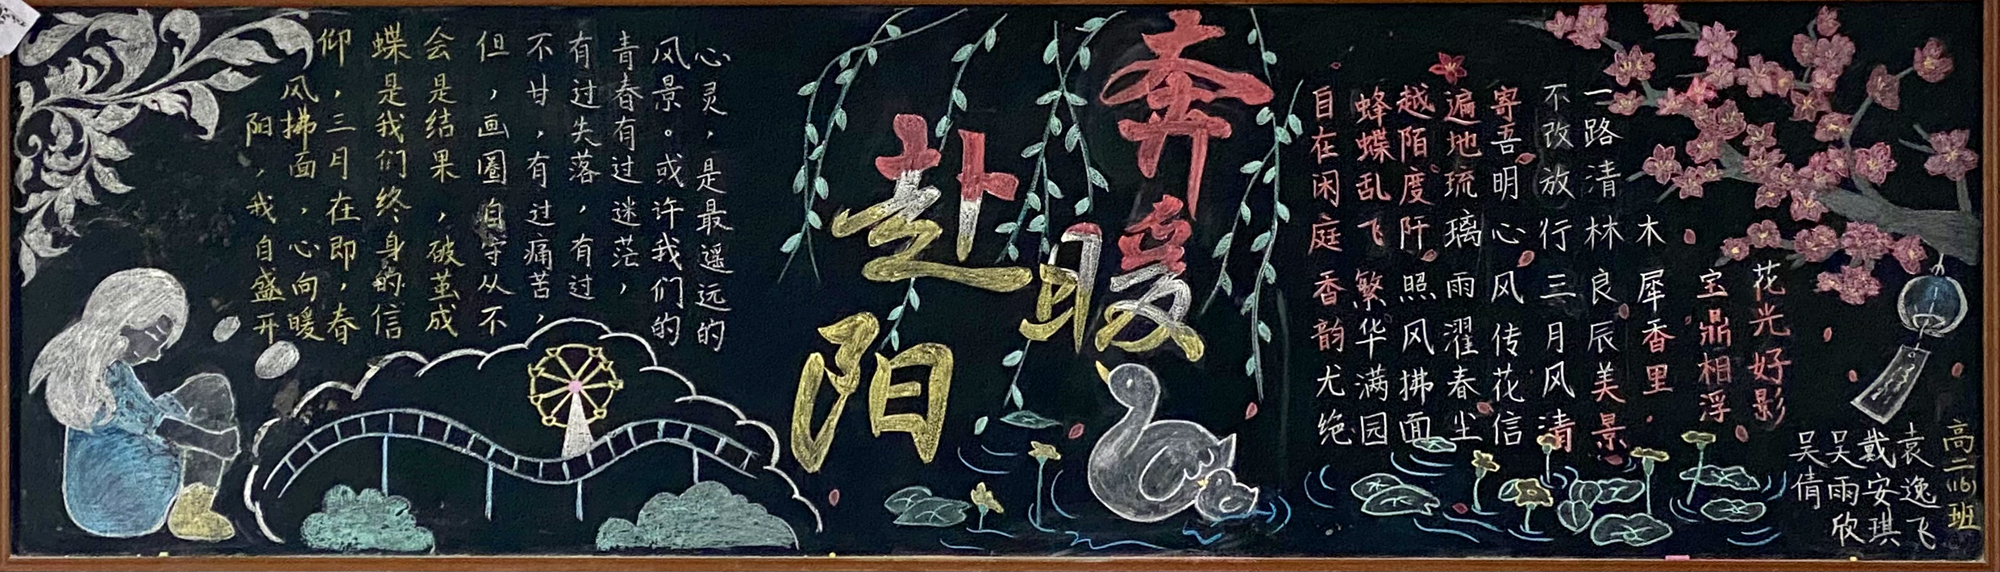 奔赴暖阳
心灵，是最遥远的
风景。或许我们的
青春有过迷茫，
有过失落，有过
不甘，有过痛苦，
但，画圈自守从不
会是结果，破茧成
蝶是我们终身的信
仰，三月在即，春
风拂面，心向暖
阳，我自盛开
花光好影
宝鼎相浮
木犀香里
一路清林 良辰美景
不改放行 三月风清
寄吾明心 风传花信
遍地琉璃 雨濯春尘
越陌度阡 照风拂面
蜂蝶乱飞 繁华满园
自在闲庭 香韵尤绝
高二(16)班
袁逸飞
戴安琪
吴雨欣
吴倩